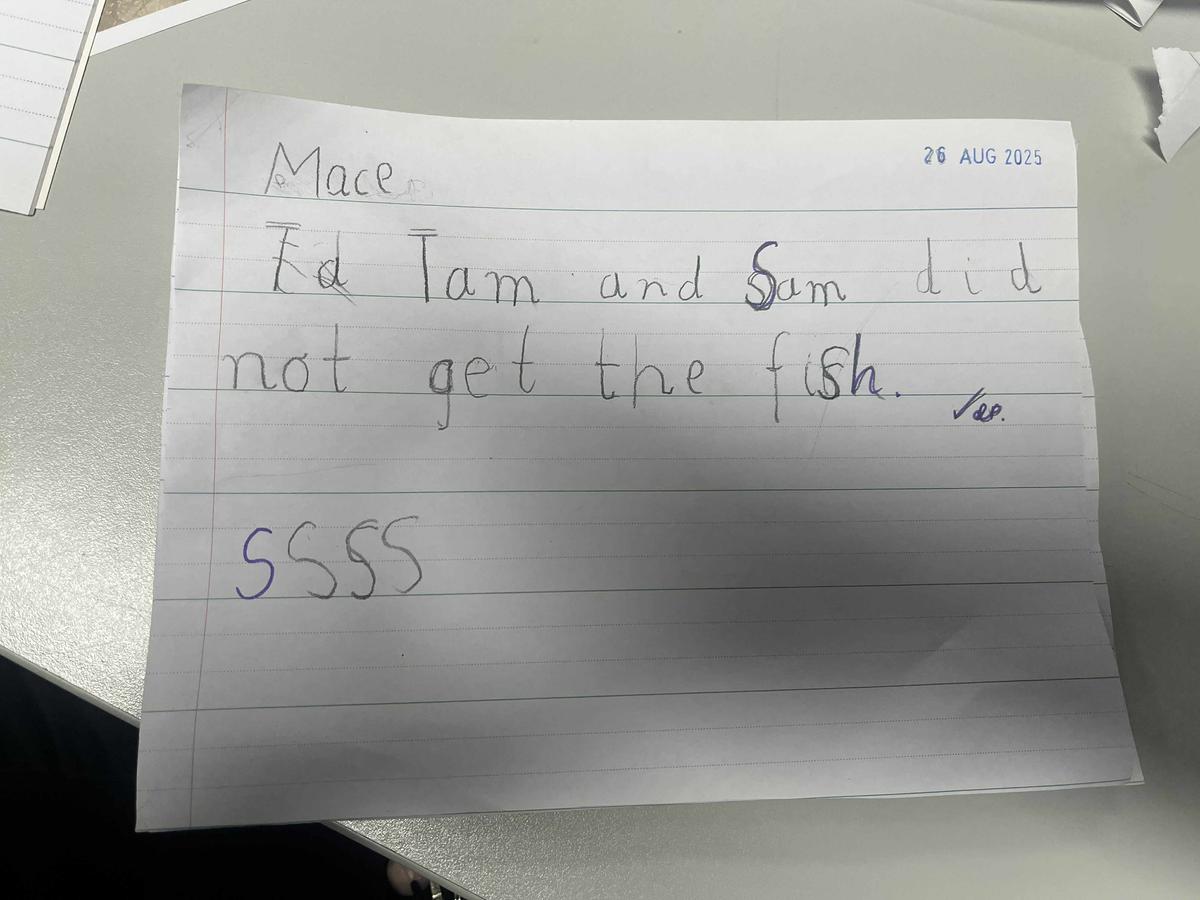 Mace
26 AUG 2025
Ed Tam and Sam did
not get the fish.
S S S S